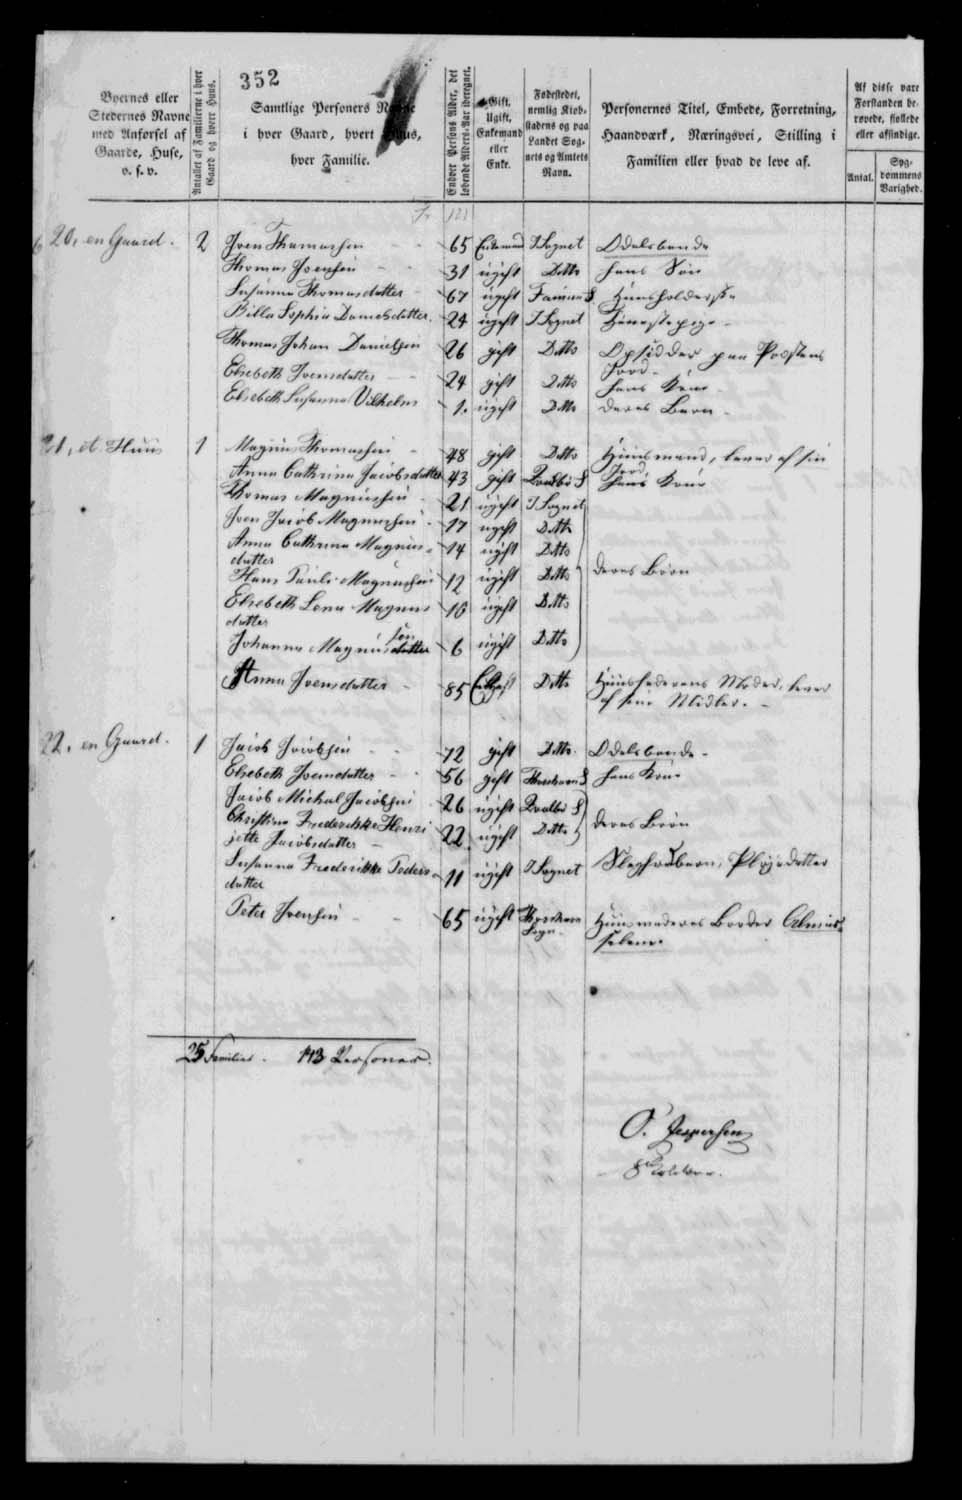 352
Byernes eller
Stedernes Navne
med Anførsel af
Gaarde, Huse,
o. s. v.
Antallet af Familierne i hver
Gaard og hvert Huus.
Samtlige Personers Navne
i hver Gaard, hvert Huus,
hver Familie.
Enhver Persons Alder, det
løbende Alders-Aar iberegnet.
Gift,
Ugift,
Enkemand
eller
Enke.
Fødestedet,
nemlig Kiøb-
stadens og paa
Landet Sog-
nets og Amtets
Navn.
Personernes Titel, Embede, Forretning,
Haandværk, Næringsvei, Stilling i
Familien eller hvad de leve af.
Af disse vare
Forstanden be-
røvede, fjollede
eller afsindige.
Antal.
Syg-
dommens
Varighed.
20, en Gaard. 2 Joen Thomassen 65 Enkemand I Sognet Odelsbonde
Thomas Joensen 31 ugift Ditto hans Søn
Susanna Thomasdatter 67 ugift S. Huusholderske
Billa Sophia Danielsdatter. 24 ugift I Sognet Tjenestepige
Thomas Johan Danielsen 26 gift Ditto Opsidder paa Præstens
Jord
Elsebeth Joensdatter 24 gift Ditto hans Kone
Elsebeth Susanna Vilhelm 1. ugift Ditto deres Barn
21, et Huus 1 Magnus Thomassen 48 gift Ditto Huusmand, lever af sin
Jord
Anna Cathrina Jacobsdatter 43 gift Qvalbø S hans Kone
Thomas Magnussen 21 ugift I Sognet
Joen Jacob Magnussen 17 ugift Ditto
Anna Cathrina Magnus-
datter 14 ugift Ditto
Hans Pauli Magnussen 12 ugift Ditto deres Børn
Elsebeth Lena Magnus
datter 10 ugift Ditto
Johanna Magnusdatter sen 6 ugift Ditto
Anna Joensdatter 85 Ditto Huusfaderens Moder, lever
af sine Midler.
22, en Gaard. 1 Jacob Jacobsen 72 gift Ditto Odelsbonde
Elsebeth Joensdatter 56 gift Thorshavn S hans Kone
Jacob Michal Jacobsen 26 ugift Qvalbø S
Christina Frederikke Henri
jette Jacobsdatter 22 ugift Ditto deres Børn
Susanna Frederikke Peders
datter 11 ugift I Sognet Slegfredbarn, Pleiedatter
Peter Joensen 65 ugift Thorshavn
Sogn. Huusmoderens Broder Almis-
selem
25 Familier. 143 Personer.
O. Jespersen